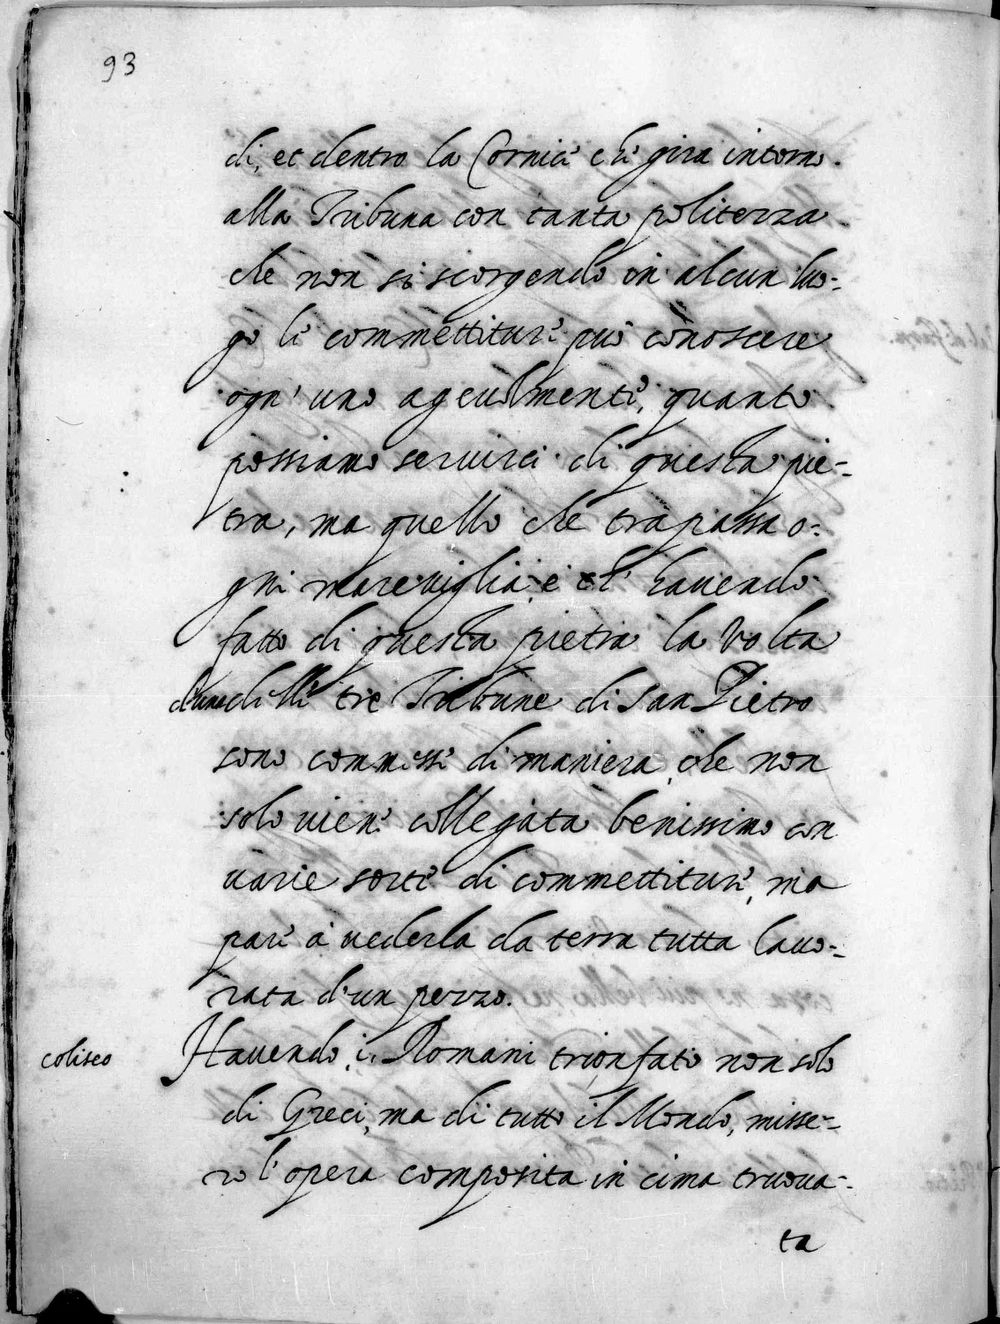 93
di, et dentro la Cornice che gira intorno
alla Tribuna con tanta politezza
che non si scorgendo in alcun luo-
go le commettiture può conoscere
ogn' uno agevolmente, quanto
possiamo servirci di questa pie-
tra, ma quello che trapassa o-
gni mareviglia è ch' havendo
fatto di questa pietra la Volta
d'una delle tre Tribune di San Pietro
sono commessi di maniera, che non
solo viene collegata benissimo con
varie sorte di commettiture, ma
pare à vederla da terra tutta lavo-
rata d'un pezzo.
coliseo Havendo i Romani trionfato non solo
di Greci, ma di tutto il Mondo, misse-
ro l'opera composita in cima truova-
ta